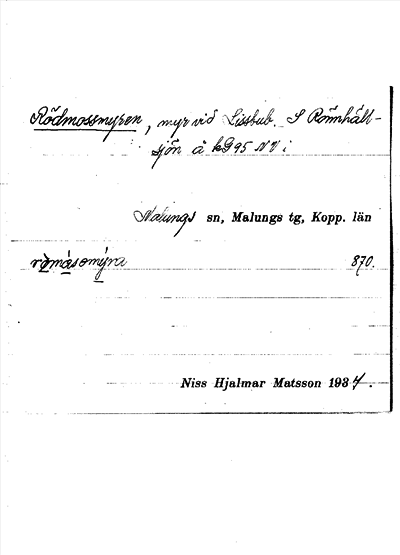 Rödmossmyren, myr vid Lissbub. S Rönnhält-
sjön å kG95 NV i
Malungs sn, Malungs tg, Kopp. län
römåsomýra 870.
Niss Hjalmar Matsson 1934.